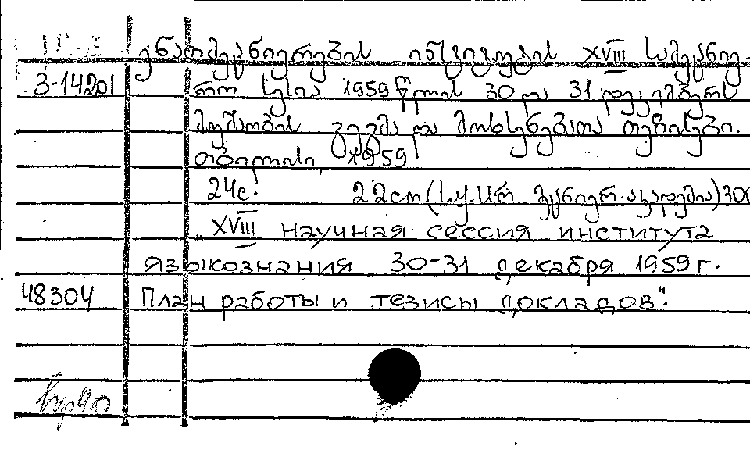 ენათმეცნიერების ინსტიტუტის XVIII სამეცნიე-
3-14201 რო სესია 1959 წლის 30 და 31 დეკემბერს
მუშაობის გეგმა და მოხსენებათა თეზისები.
თბილისი, 1959
24с. 22см (საქ. სსრ მეცნიერ. აკადემია) 300
XVIII научная сессия института
языкознания 30-31 декабря 1959 г.
48304 План работы и тезисы докладов".